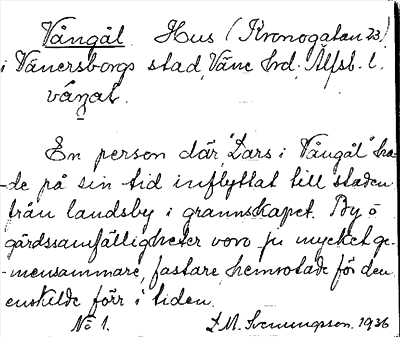 Vångål Hus (Kronogatan 23)
i Vänersborgs stad, Väne hrd. Älfsb. l.
våŋal.
En person där, "Lars i Vångål" ha-
-de på sin tid inflyttat till staden
från landsby i grannskapet. By o
gårdssamfälligheter voro ju mycket ge-
-mensammare, fastare, hemrotade för den
enskilde förr i tiden.
No 1. L.M. Svenungson. 1936